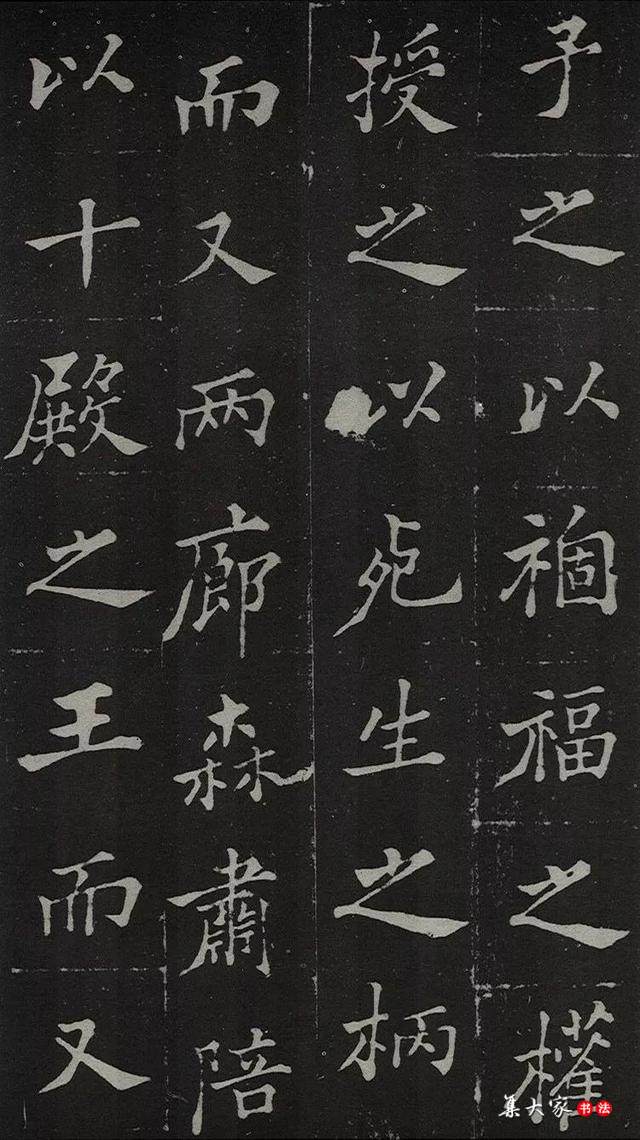 予之以祸福之權
授之以死生之柄
而又两廊森肅陪
以十殿之王而又
集大家书法